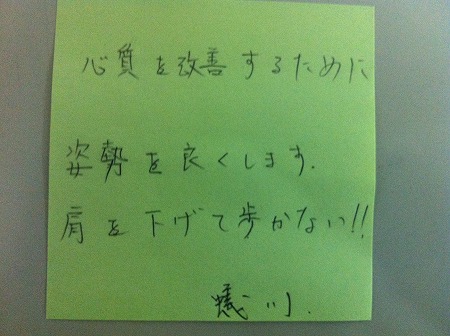 心質を改善するために
姿勢を良くします.
肩を下げて歩かない!!
蟻川.